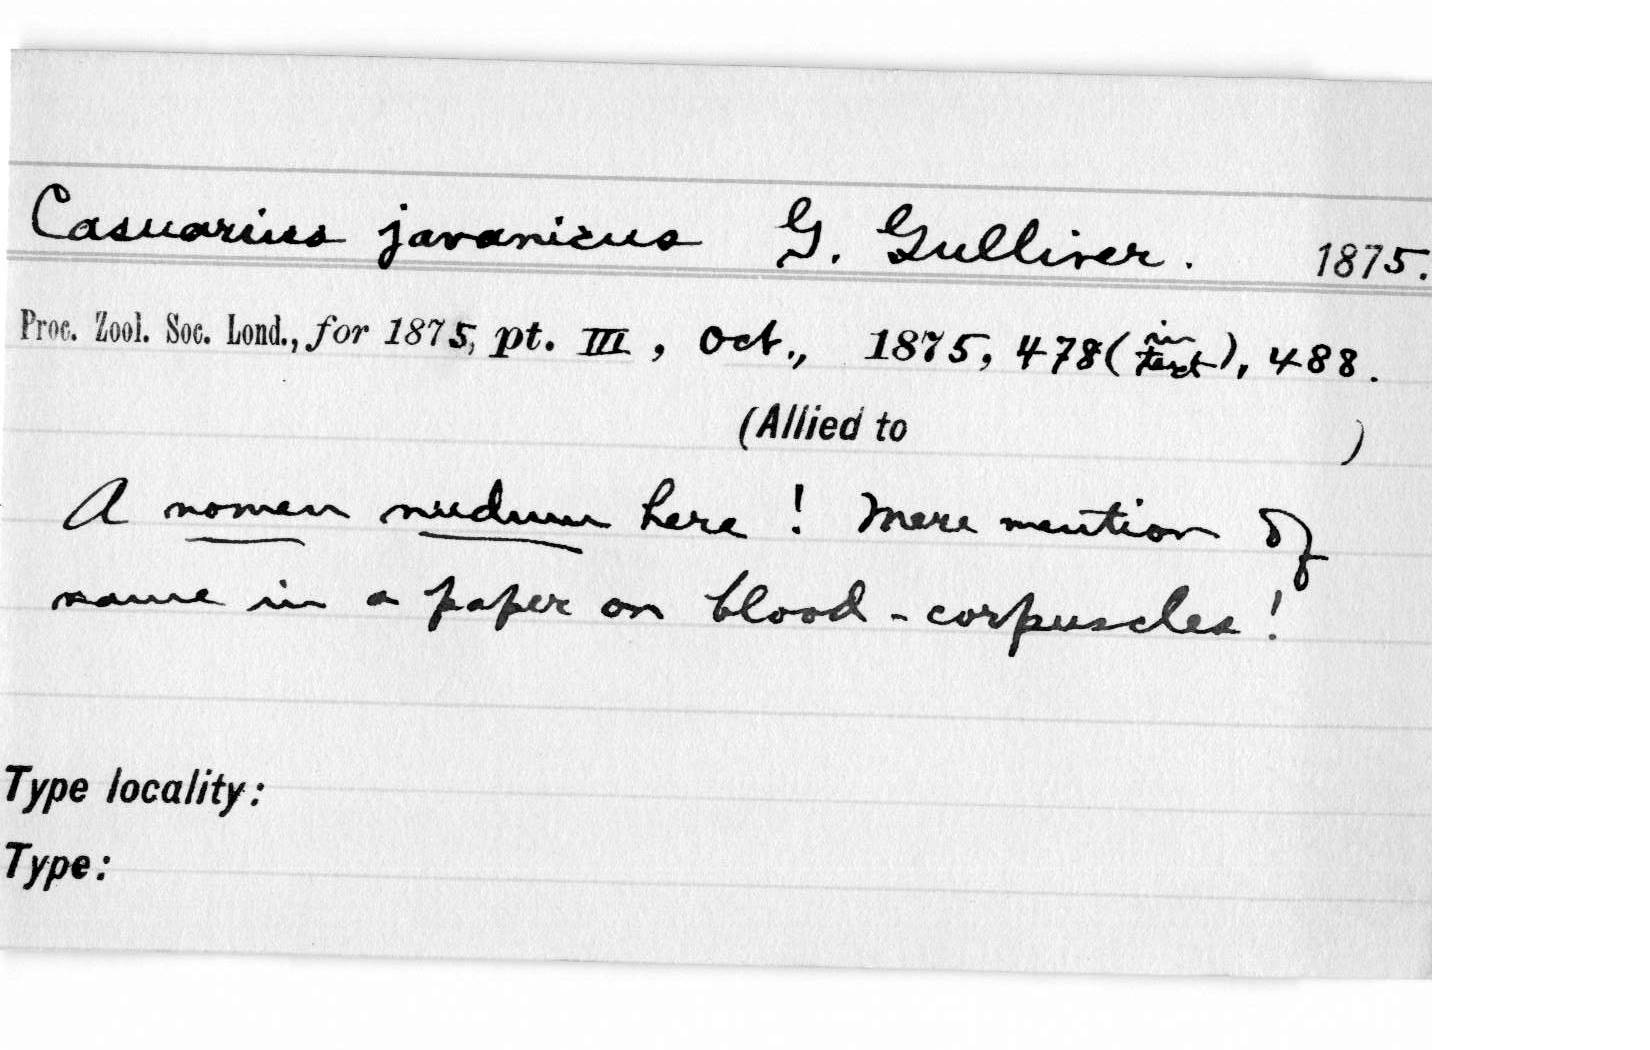 Casuarius javanicus G. Gulliver. 1875.
Proc. Zool. Soc. Lond., for 1875, pt. III, Oct., 1875, 478 (in text), 488.
(Allied to )
A nomen nudum here! Mere mention of
name in a paper on blood-corpuscles!
Type locality:
Type: